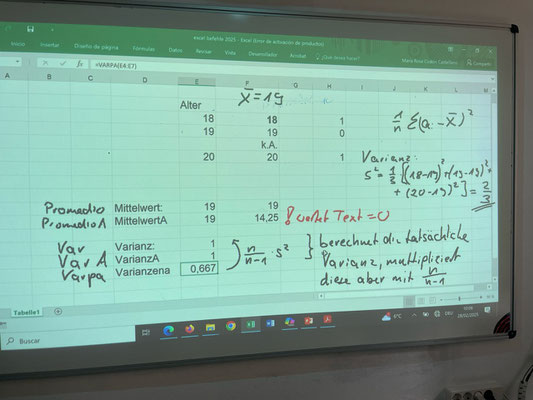 excel Safelite 2025 - Excel (Error de activación de productos)
Inicio Insertar Diseño de página Fórmulas Datos Revisar Vista Desarrollador Acrobat ¿Qué desea hacer?
=VARPA(E4:E7)
A B C D E F G H I J K L M
x̄ = 19
Alter
18 18 1
19 19 0
k.A.
20 20 1
1/n Σ(aᵢ - x̄)²
Varianz:
s² = 1/3 [(18-19)² + (19-19)² +
+ (20-19)²] = 2/3
Promedio Mittelwert: 19 19
PromedioA MittelwertA 19 14,25 ! wertet Text = 0
Var Varianz: 1
VarA VarianzA 1
Varpa Varianzena 0,667
n/n-1 · s²
berechnet die tatsächliche
Varianz, multipliziert
diese aber mit n/n-1
Tabelle1
Buscar
6°C
DEU
10:06
28/02/2025